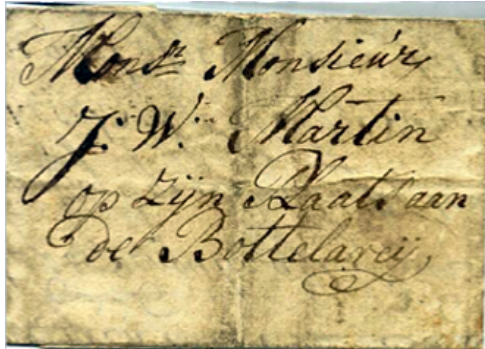 Monsr Monsieur
J. W. Martin
op zijn Plaats aan
de Bottelareij